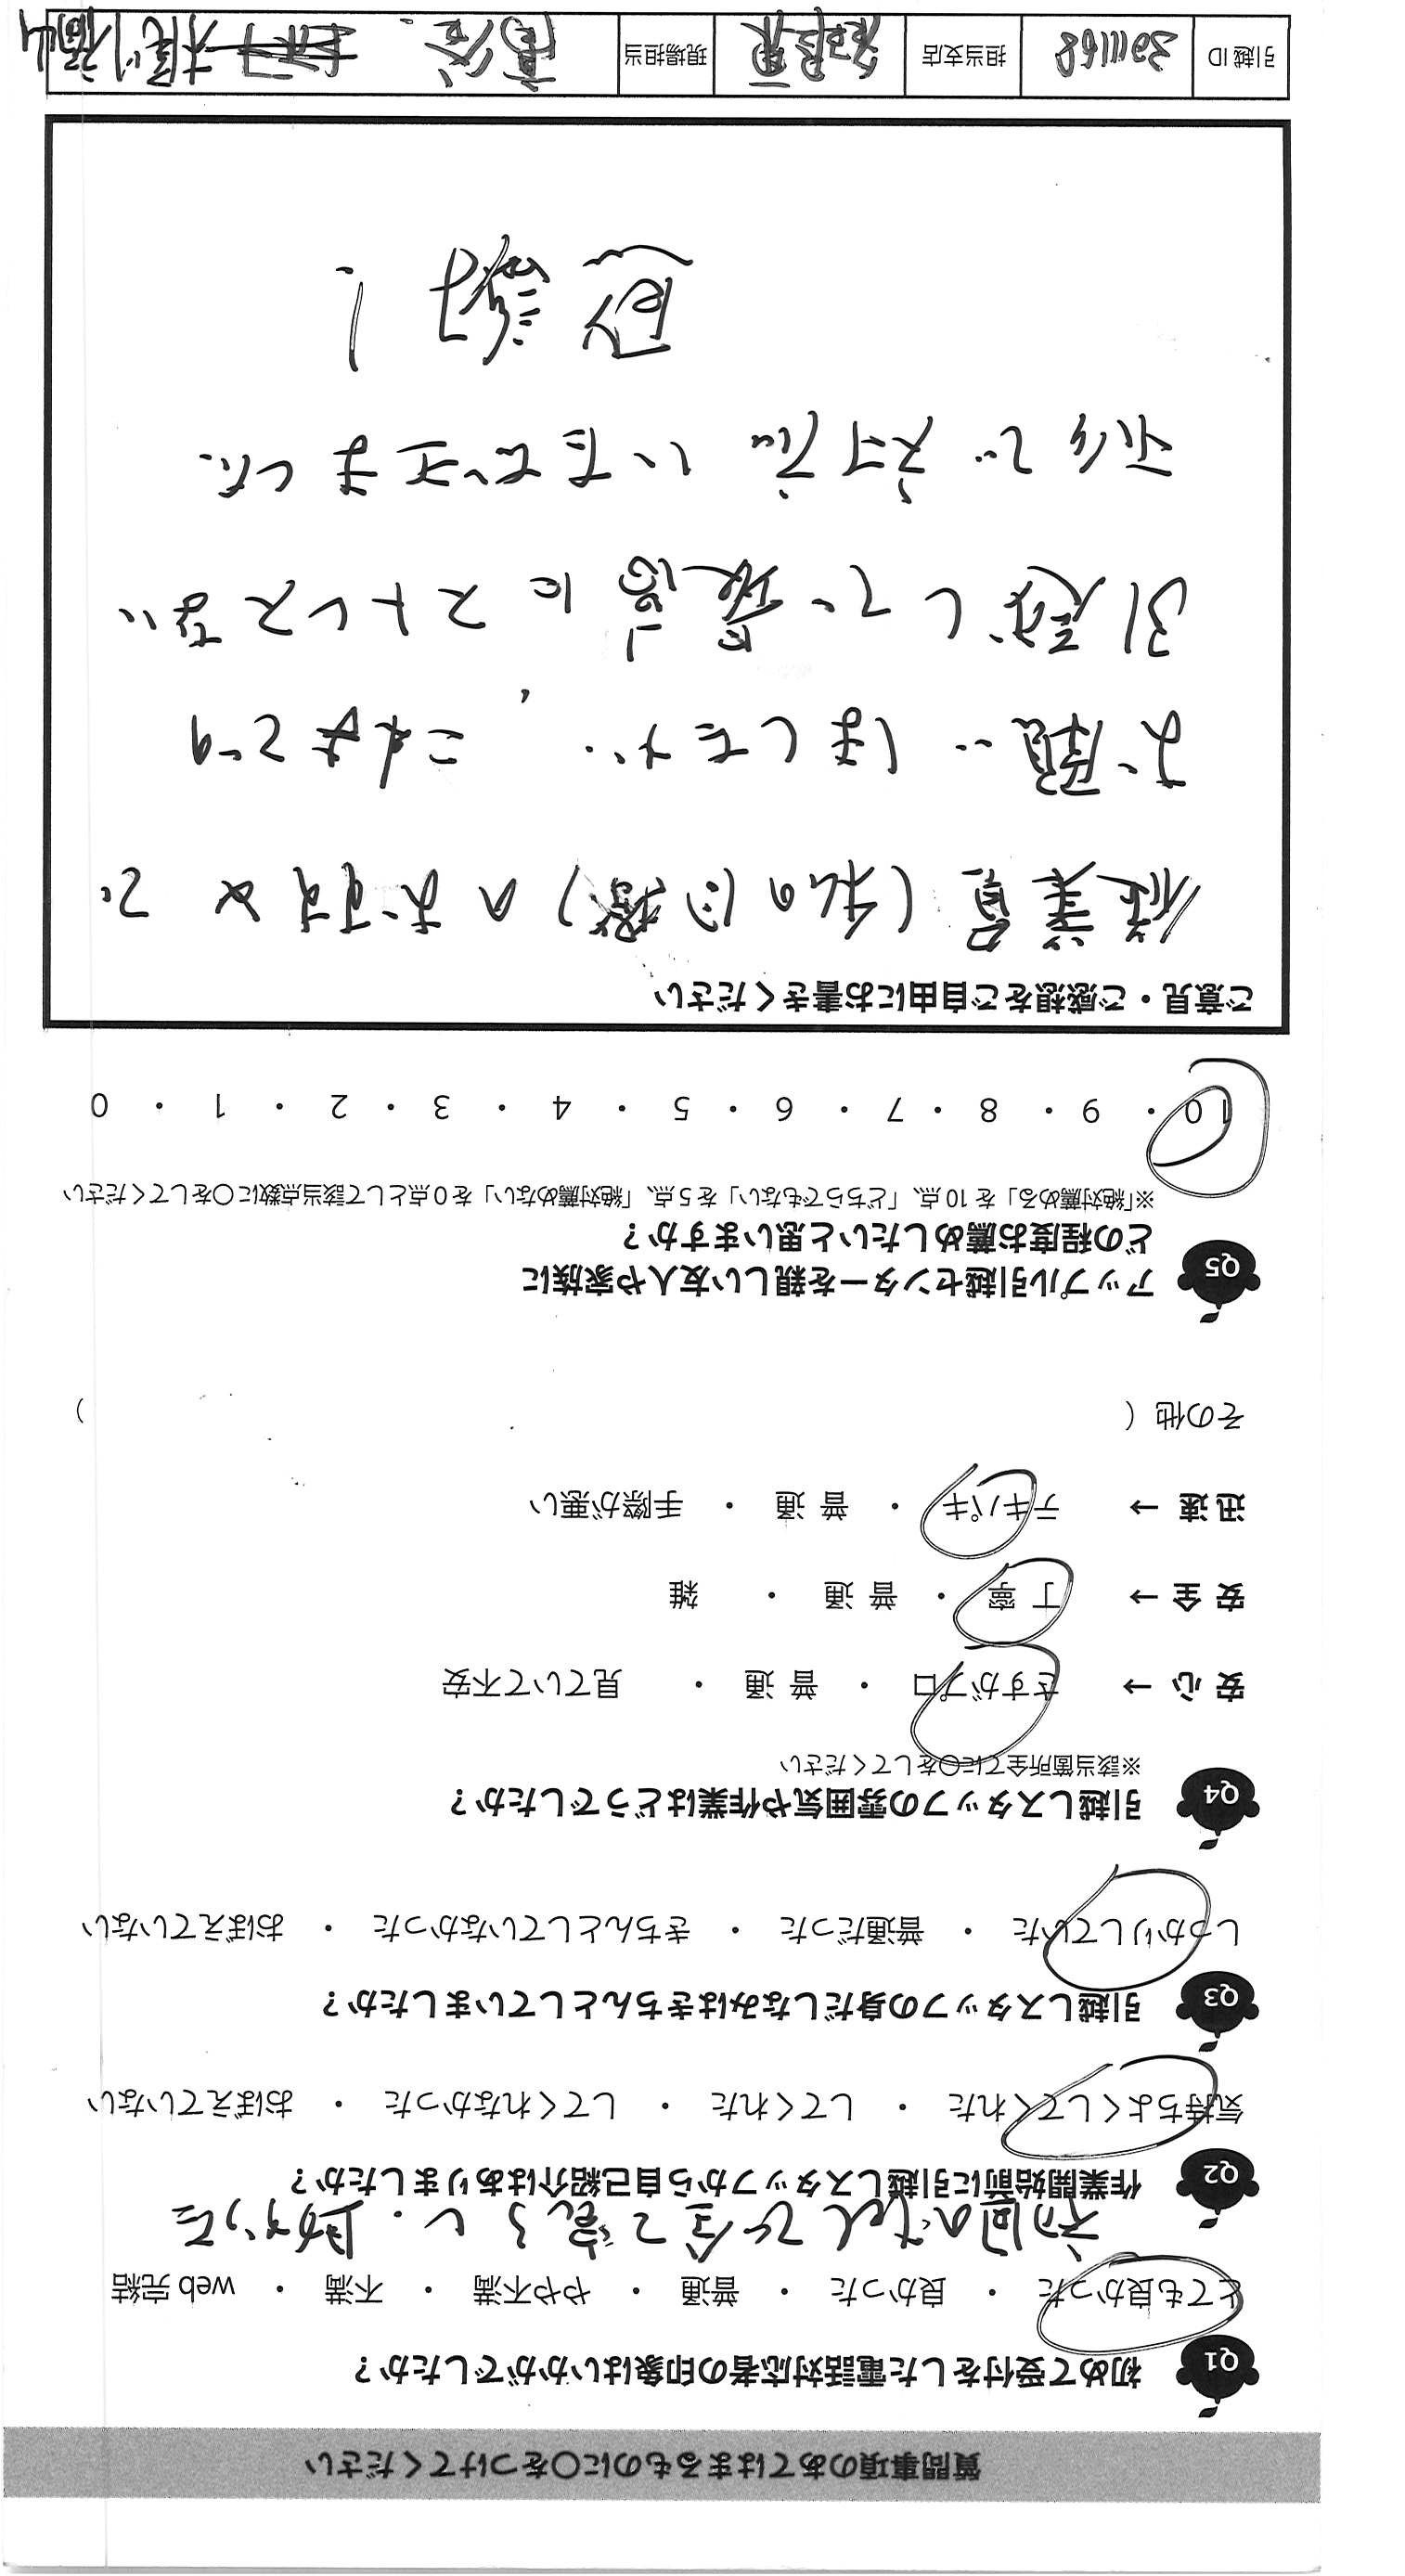 質問事項のあてはまるものに○をつけてください
Q1 初めて受付をした電話対応者の印象はいかがでしたか?
とても良かった ・ 良かった ・ 普通 ・ やや不満 ・ 不満 ・ web完結
初回のtelで全て完了し、助かった
Q2 作業開始前に引越しスタッフから自己紹介はありましたか?
気持ちよくしてくれた ・ してくれた ・ してくれなかった ・ おぼえていない
Q3 引越しスタッフの身だしなみはきちんとしていましたか?
しっかりしていた ・ 普通だった ・ きちんとしていなかった ・ おぼえていない
Q4 引越しスタッフの雰囲気や作業はどうでしたか?
※該当箇所全てに○をしてください
安心 → さすがプロ ・ 普通 ・ 見ていて不安
安全 → 丁寧 ・ 普通 ・ 雑
迅速 → テキパキ ・ 普通 ・ 手際が悪い
その他 ( )
Q5 アップル引越センターを親しい友人や家族に
どの程度お薦めしたいと思いますか?
※「絶対薦める」を10点、「どちらでもない」を5点、「絶対薦めない」を0点として該当点数に○をしてください
10 ・ 9 ・ 8 ・ 7 ・ 6 ・ 5 ・ 4 ・ 3 ・ 2 ・ 1 ・ 0
ご意見・ご感想をご自由にお書きください
従業員(私の同僚)のおすすめで
お願いしましたが、これまでの
引越しで最高にストレスない
形で対応いただきました。
感謝!
引越ID 3011168 担当支店 現場担当 高谷.